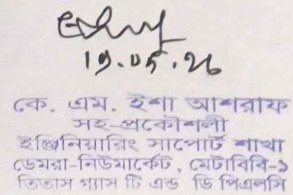 19.05.26
কে. এম. ইশা আশরাফ
সহ-প্রকৌশলী
ইঞ্জিনিয়ারিং সাপোর্ট শাখা
ডেমরা-নিউমার্কেট, মেটাবিবি-১
তিতাস গ্যাস টি এন্ড ডি পিএলসি